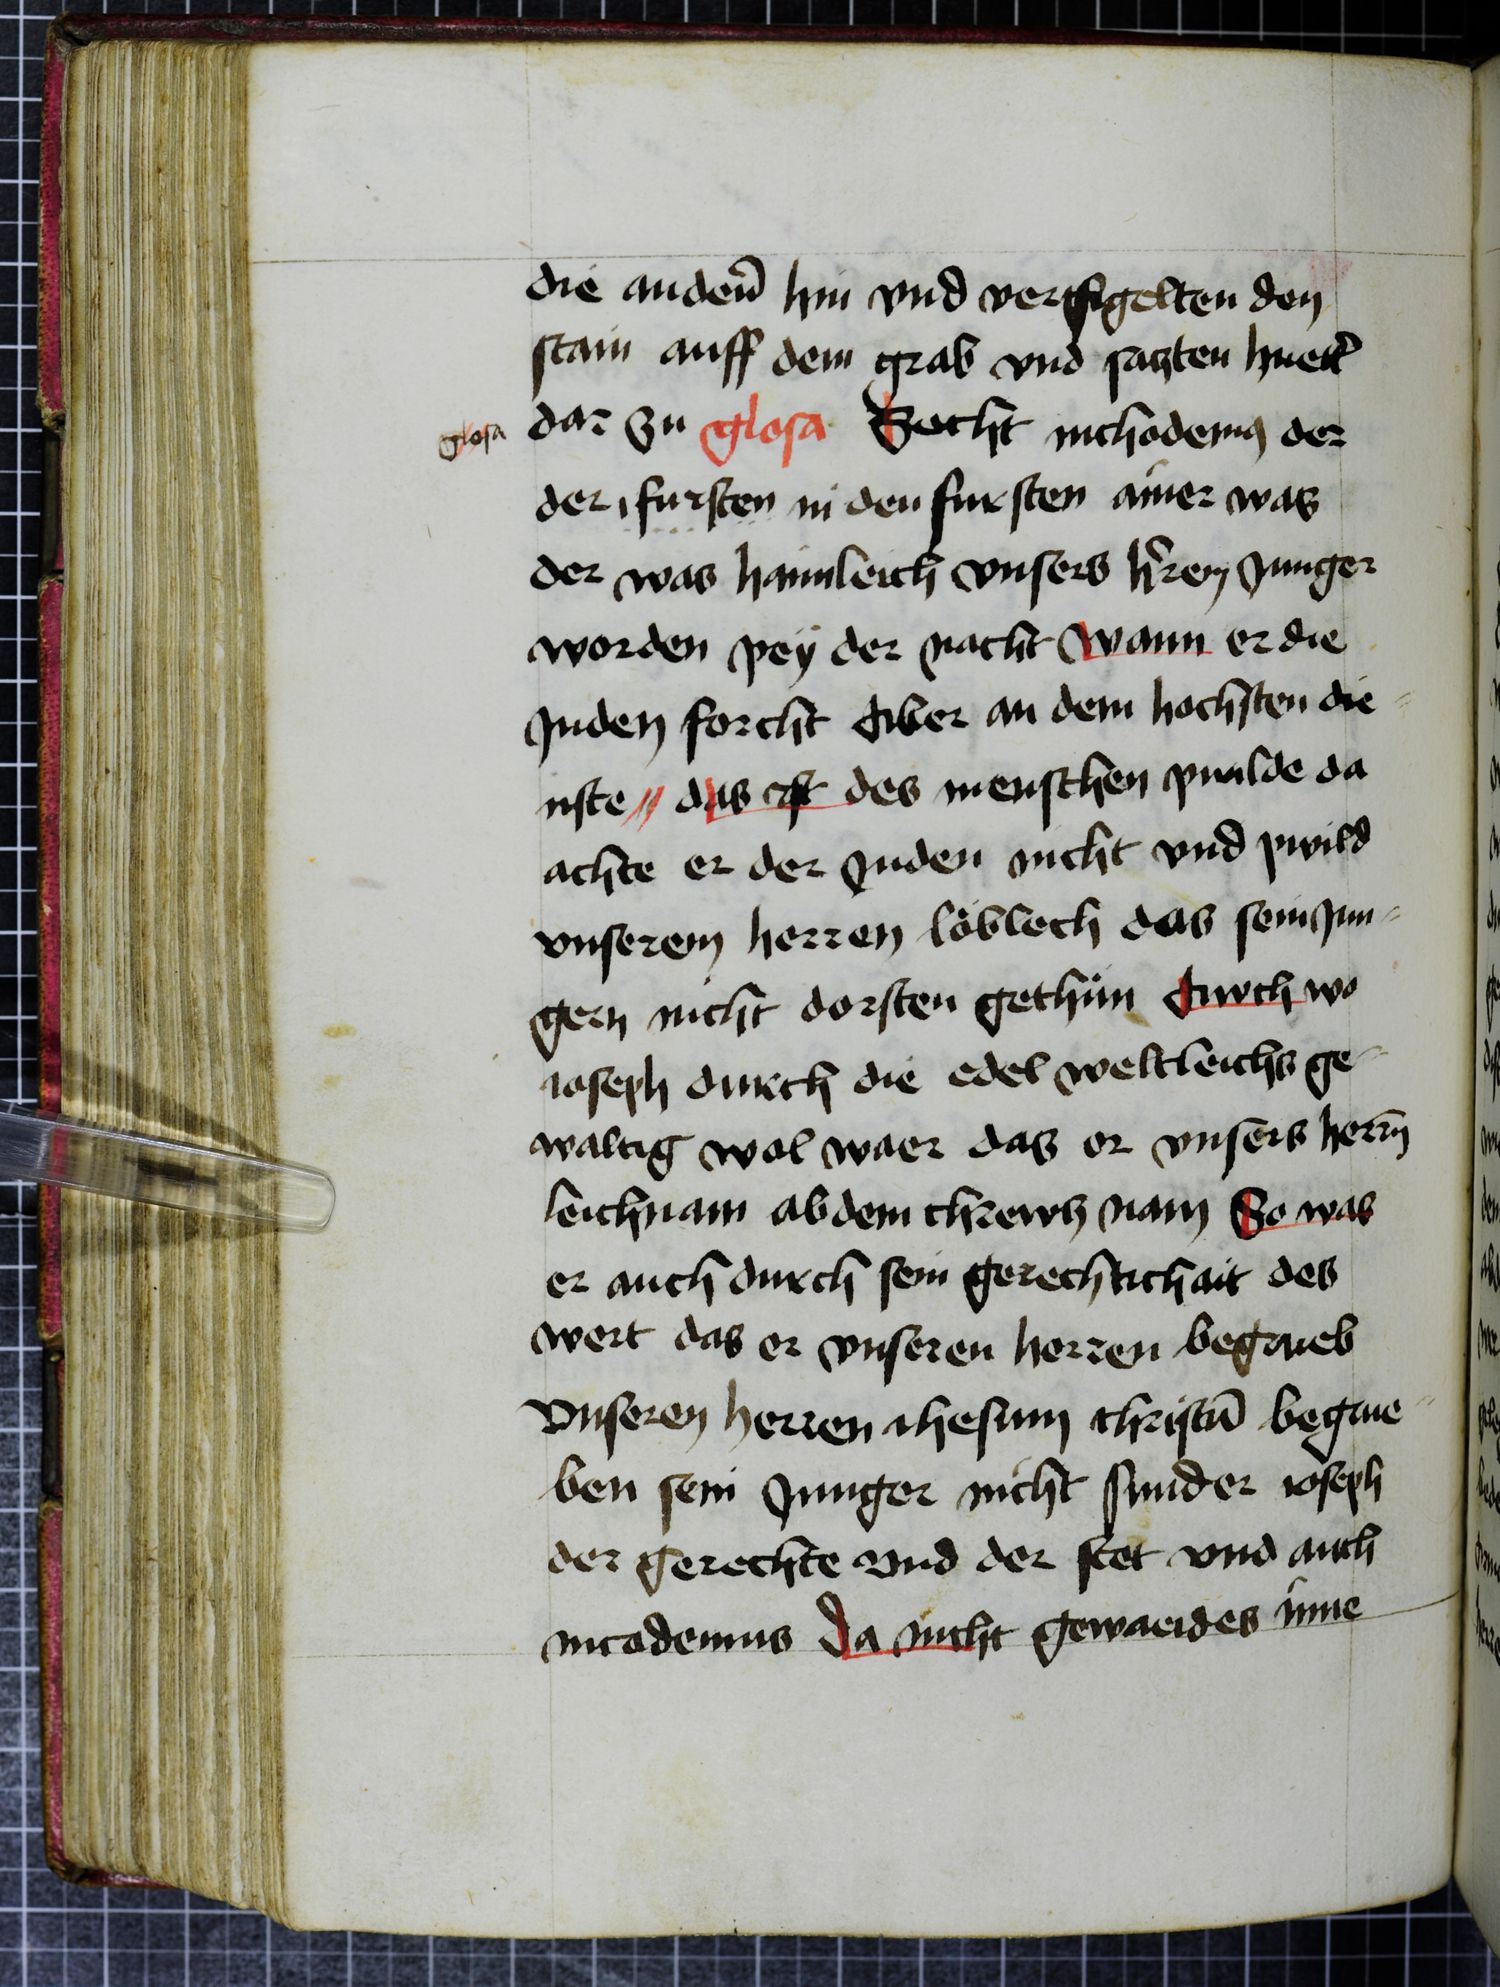 die anderñ hin vnd versigelten den
stain auff dem grab vnd saczten huett̃
glosa
dar zu glosa Secht nichodemꝯ der
der fursten in den fursten ainer was
der was haimleich vnsers h̃ren Junger
worden peÿ der nacht wann er die
Juden forcht Aber an dem hochsten die=
nste das ist des menschen pivilde da
achte er der Juden nicht vnd pivild
vnserem herren löblech das sein Jun=
gern nicht dorsten gethün durch wo
ioseph durch die edel weltleichs ge=
waltig wol waer das er vnsers herrñ
leichnam ab dem chrewcz nam So was
er auch durch sein gerechtichait des
wert das er vnseren herren begrueb
Vnseren herren ihesum christū begrue=
ben sein Junger nicht sunder ioseph
der gerechte vnd der stet vnd auch
nicodemus Da nicht gewaeides inne